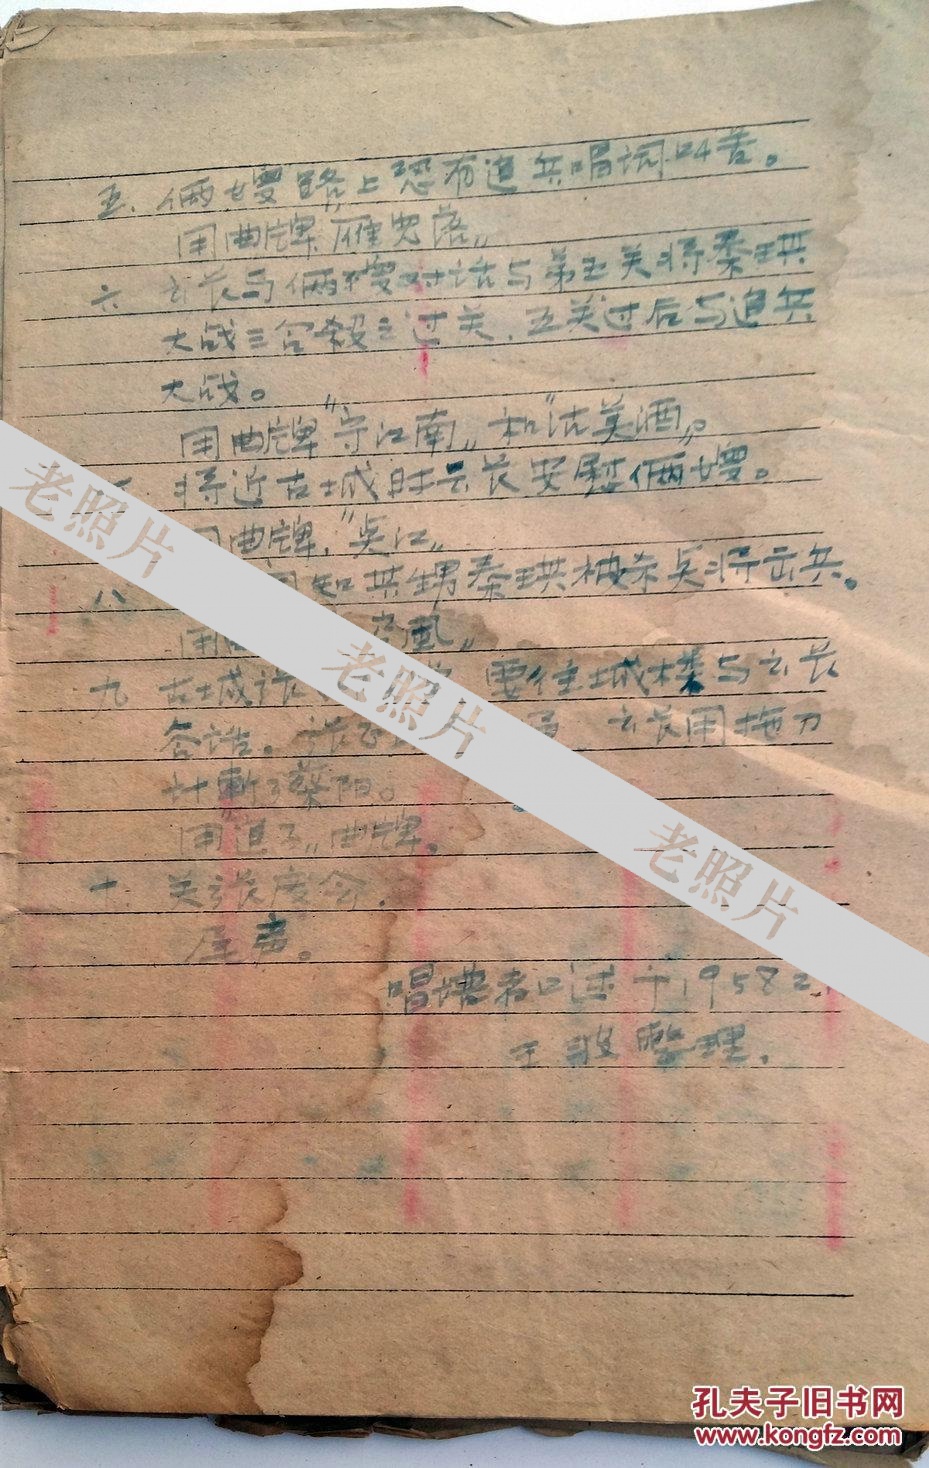 五、俩嫂路上恐有追兵唱词叫苦。
用曲牌"雁儿落"
六 云长与俩嫂对话与第五关将秦琪
大战三合殺之过关，五关过后与追兵
大战。
用曲牌"守江南"和"沽美酒"。
将近古城时云长安慰俩嫂。
用曲牌，"吴江"
八 知其甥秦琪被杀 将出兵。
用曲 風"
九 古城 要住城楼与云长
答话。 云长用拖刀
计斬了蔡阳。
用 曲牌。
十 关張 会，
尾声。
唱 者口述于1958
王 整理.
老照片
老照片
老照片
孔夫子旧书网
www.kongfz.com